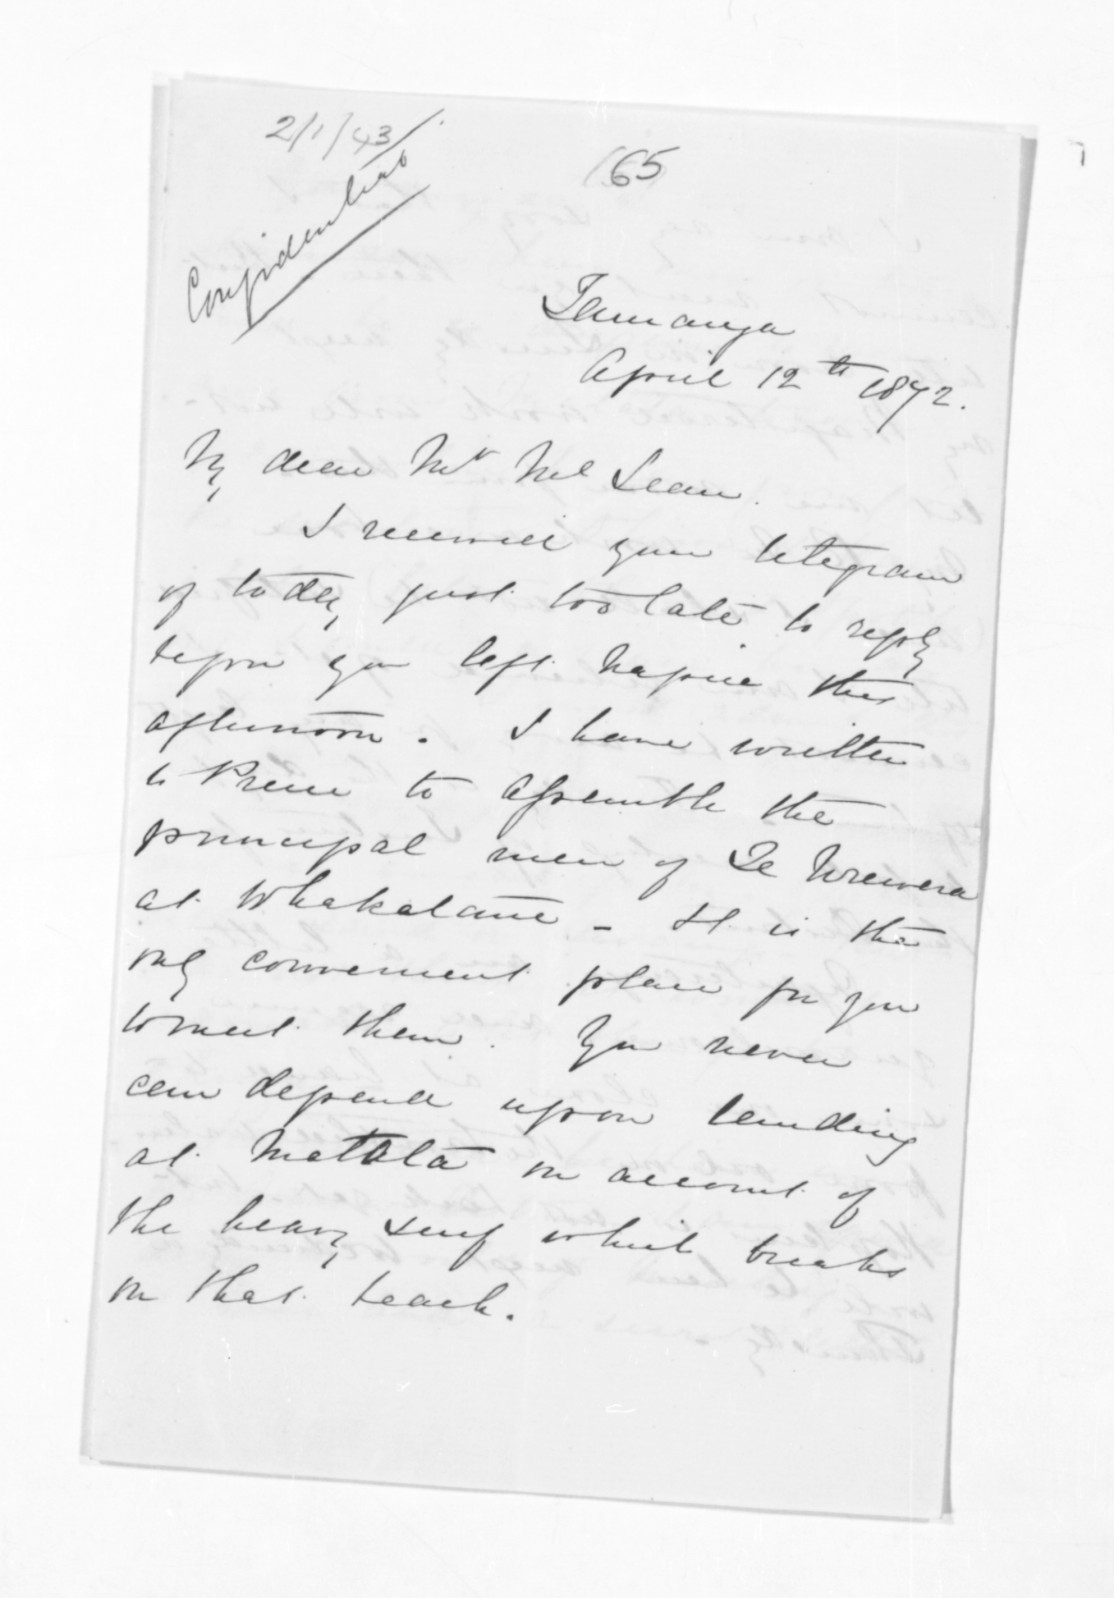 2/1/43
Confidential
(65
Tauranga
April 12th 1872.
My dear Mr McLean.
I received your telegram
of today just too late to reply
before you left Napier this
afternoon. I have written
to Preece to assemble the
principal men of Te Urewera
at Whakatane - It is the
only convenient place for you
to meet them. You never
can depend upon landing
at Matata on account of
the heavy surf which breaks
on that beach.